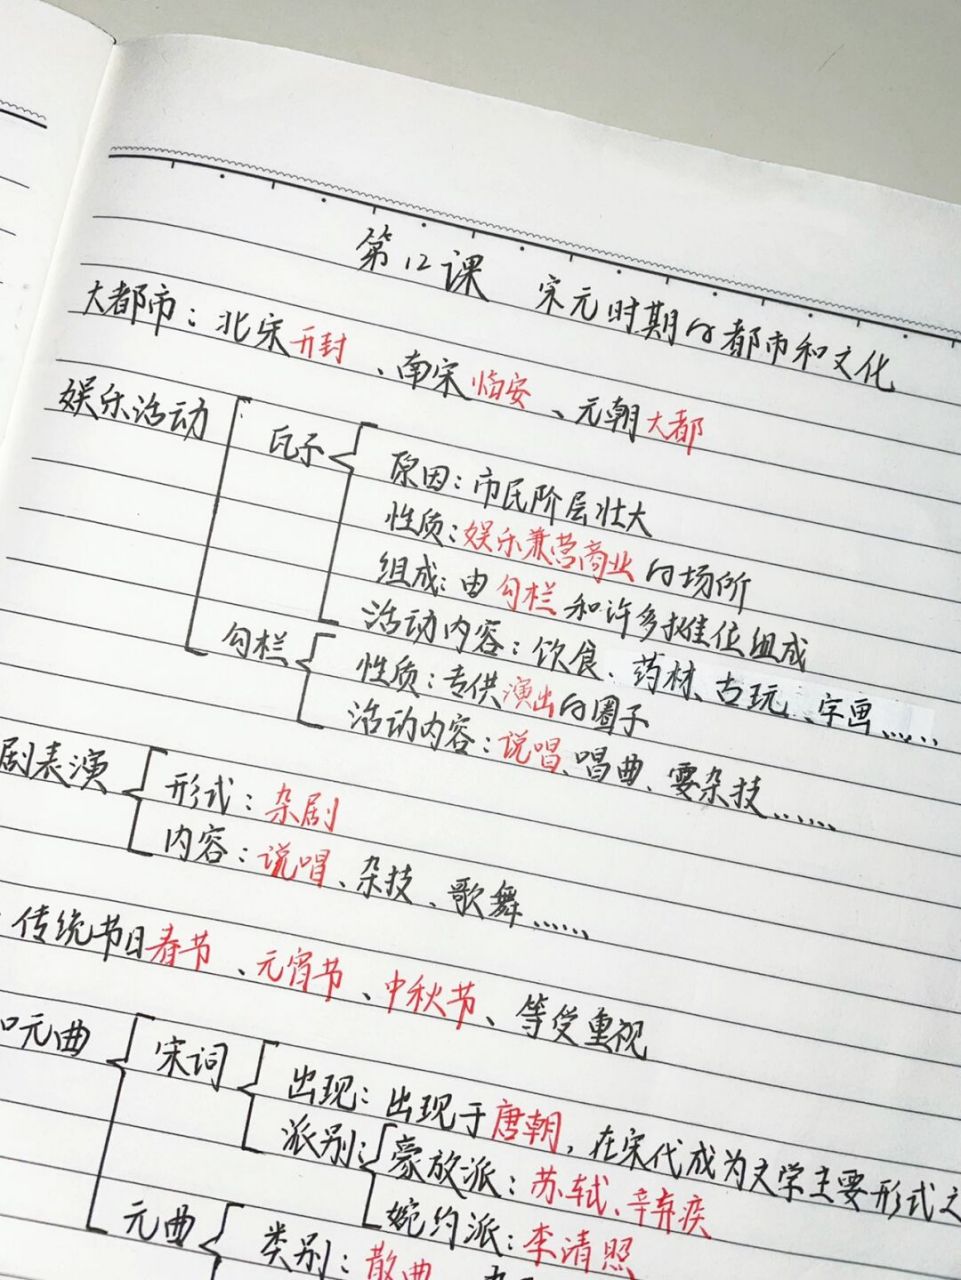 第12课 宋元时期的都市和文化
大都市：北宋开封、南宋临安、元朝大都
娱乐活动
瓦子
原因：市民阶层壮大
性质：娱乐兼营商业的场所
组成：由勾栏和许多摊位组成
活动内容：饮食、药材、古玩、字画……
勾栏
性质：专供演出的圈子
活动内容：说唱、唱曲、耍杂技……
剧表演
形式：杂剧
内容：说唱、杂技、歌舞……
传统节日春节、元宵节、中秋节、等受重视
元曲
宋词
出现：出现于唐朝，在宋代成为文学主要形式之
派别：
豪放派：苏轼、辛弃疾
婉约派：李清照
元曲
类别：散曲、